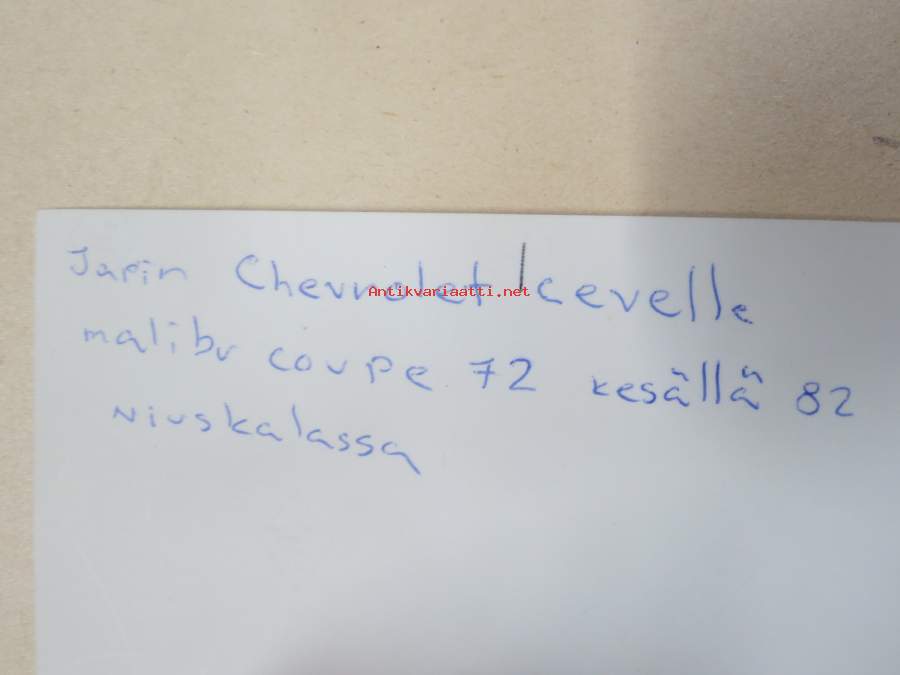 Japin Chevrolet cevelle
Antikvariaatti.net
malibu coupe 72 kesällä 82
Niuskalassa